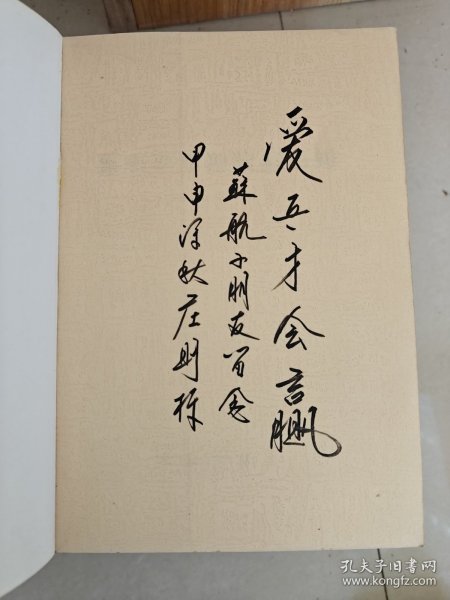 爱拼才会赢
蘇航小朋友留念
甲申深秋庄则栋
孔夫子旧书网
www.kongfz.com